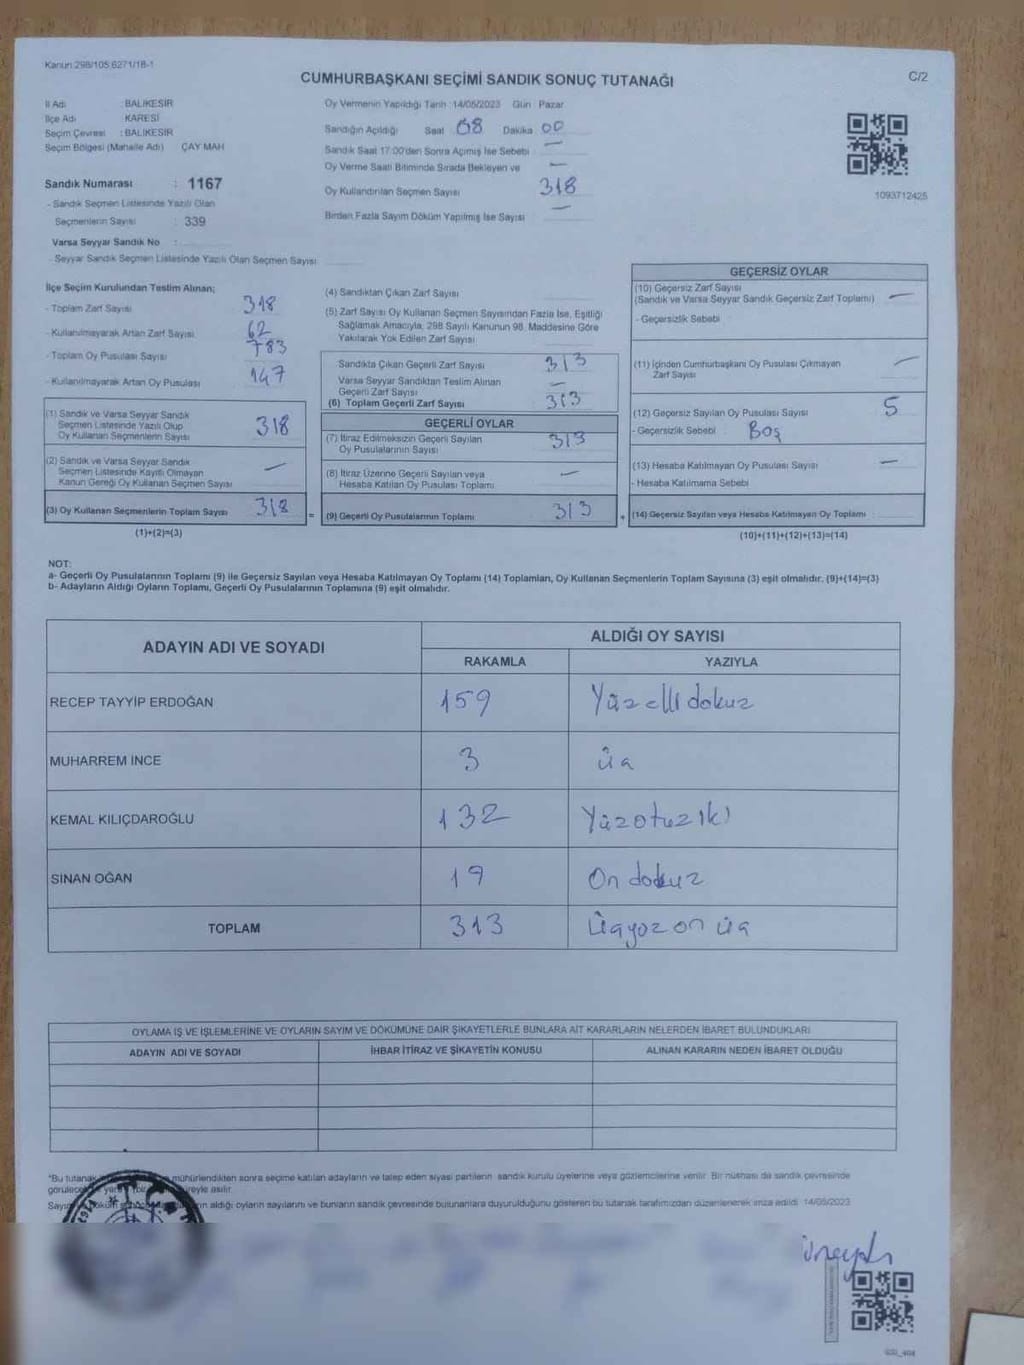 Kanun 298/105 6271/18-1
CUMHURBAŞKANI SEÇİMİ SANDIK SONUÇ TUTANAĞI
C/2
İl Adı : BALIKESİR
İlçe Adı KARESİ
Seçim Çevresi : BALIKESİR
Seçim Bölgesi (Mahalle Adı) ÇAY MAH
Sandık Numarası : 1167
- Sandık Seçmen Listesinde Yazılı Olan
Seçmenlerin Sayısı : 339
Varsa Seyyar Sandık No :
- Seyyar Sandık Seçmen Listesinde Yazılı Olan Seçmen Sayısı
Oy Vermenin Yapıldığı Tarih 14/05/2023 Gün Pazar
Sandığın Açıldığı Saat 08 Dakika 00
Sandık Saat 17:00'den Sonra Açımış İse Sebebi —
Oy Verme Saati Bitiminde Sırada Bekleyen ve —
Oy Kullandırılan Seçmen Sayısı 318
Birden Fazla Sayım Döküm Yapılmış İse Sayısı —
1093712425
İlçe Seçim Kurulundan Teslim Alınan;
- Toplam Zarf Sayısı 318
- Kullanılmayarak Artan Zarf Sayısı 62
- Toplam Oy Pusulası Sayısı 783
- Kullanılmayarak Artan Oy Pusulası 147
(1) Sandık ve Varsa Seyyar Sandık
Seçmen Listesinde Yazılı Olup
Oy Kullanan Seçmenlerin Sayısı 318
(2) Sandık ve Varsa Seyyar Sandık
Seçmen Listesinde Kayıtlı Olmayan
Kanun Gereği Oy Kullanan Seçmen Sayısı —
(3) Oy Kullanan Seçmenlerin Toplam Sayısı 318
(1)+(2)=(3)
=
(4) Sandıktan Çıkan Zarf Sayısı
(5) Zarf Sayısı Oy Kullanan Seçmen Sayısından Fazla İse, Eşitliği
Sağlamak Amacıyla, 298 Sayılı Kanunun 98. Maddesine Göre
Yakılarak Yok Edilen Zarf Sayısı
Sandıkta Çıkan Geçerli Zarf Sayısı 313
Varsa Seyyar Sandıktan Teslim Alınan
Geçerli Zarf Sayısı —
(6) Toplam Geçerli Zarf Sayısı 313
GEÇERLİ OYLAR
(7) İtiraz Edilmeksizin Geçerli Sayılan
Oy Pusulalarının Sayısı 313
(8) İtiraz Üzerine Geçerli Sayılan veya
Hesaba Katılan Oy Pusulası Toplamı —
(9) Geçerli Oy Pusulalarının Toplamı 313
+
GEÇERSİZ OYLAR
(10) Geçersiz Zarf Sayısı
(Sandık ve Varsa Seyyar Sandık Geçersiz Zarf Toplamı) —
- Geçersizlik Sebebi
(11) İçinden Cumhurbaşkanı Oy Pusulası Çıkmayan
Zarf Sayısı —
(12) Geçersiz Sayılan Oy Pusulası Sayısı 5
- Geçersizlik Sebebi Boş
(13) Hesaba Katılmayan Oy Pusulası Sayısı —
- Hesaba Katılmama Sebebi
(14) Geçersiz Sayılan veya Hesaba Katılmayan Oy Toplamı
(10)+(11)+(12)+(13)=(14)
NOT:
a- Geçerli Oy Pusulalarının Toplamı (9) ile Geçersiz Sayılan veya Hesaba Katılmayan Oy Toplamı (14) Toplamları, Oy Kullanan Seçmenlerin Toplam Sayısına (3) eşit olmalıdır. (9)+(14)=(3)
b- Adayların Aldığı Oyların Toplamı, Geçerli Oy Pusulalarının Toplamına (9) eşit olmalıdır.
ADAYIN ADI VE SOYADI
ALDIĞI OY SAYISI
RAKAMLA YAZIYLA
RECEP TAYYİP ERDOĞAN 159 Yüzelli dokuz
MUHARREM İNCE 3 üç
KEMAL KILIÇDAROĞLU 132 Yüzotuz iki
SİNAN OĞAN 19 On dokuz
TOPLAM 313 Üçyüz on üç
OYLAMA İŞ VE İŞLEMLERİNE VE OYLARIN SAYIM VE DÖKÜMÜNE DAİR ŞİKAYETLERLE BUNLARA AİT KARARLARIN NELERDEN İBARET BULUNDUKLARI
ADAYIN ADI VE SOYADI İHBAR İTİRAZ VE ŞİKAYETİN KONUSU ALINAN KARARIN NEDEN İBARET OLDUĞU
*Bu tutanak mühürlendikten sonra seçime katılan adayların ve talep eden siyasi partilerin sandık kurulu üyelerine veya gözlemcilerine verilir. Bir nüshası da sandık çevresinde
asılır.
aldığı oyların sayılarını ve bunların sandık çevresinde bulunanlara duyurulduğunu gösteren bu tutanak tarafımızdan düzenlenerek imza edildi. 14/05/2023